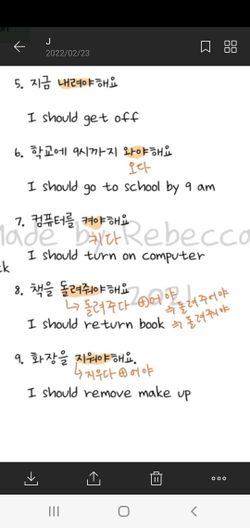 J
2022/02/23
5. 지금 내려야해요
I should get off
6. 학교에 9시까지 와야해요
오다
I should go to school by 9 am
7. 컴퓨터를 켜야해요
키다
Made by Rebecca
I should turn on computer
ck
8. 책을 돌려줘야해요
↳ 돌려주다 ⊕ 어야 ⇒ 돌려주어야
I should return book ⇒ 돌려줘야
9. 화장을 지워야해요.
↳ 지우다 ⊕ 어야
I should remove make up